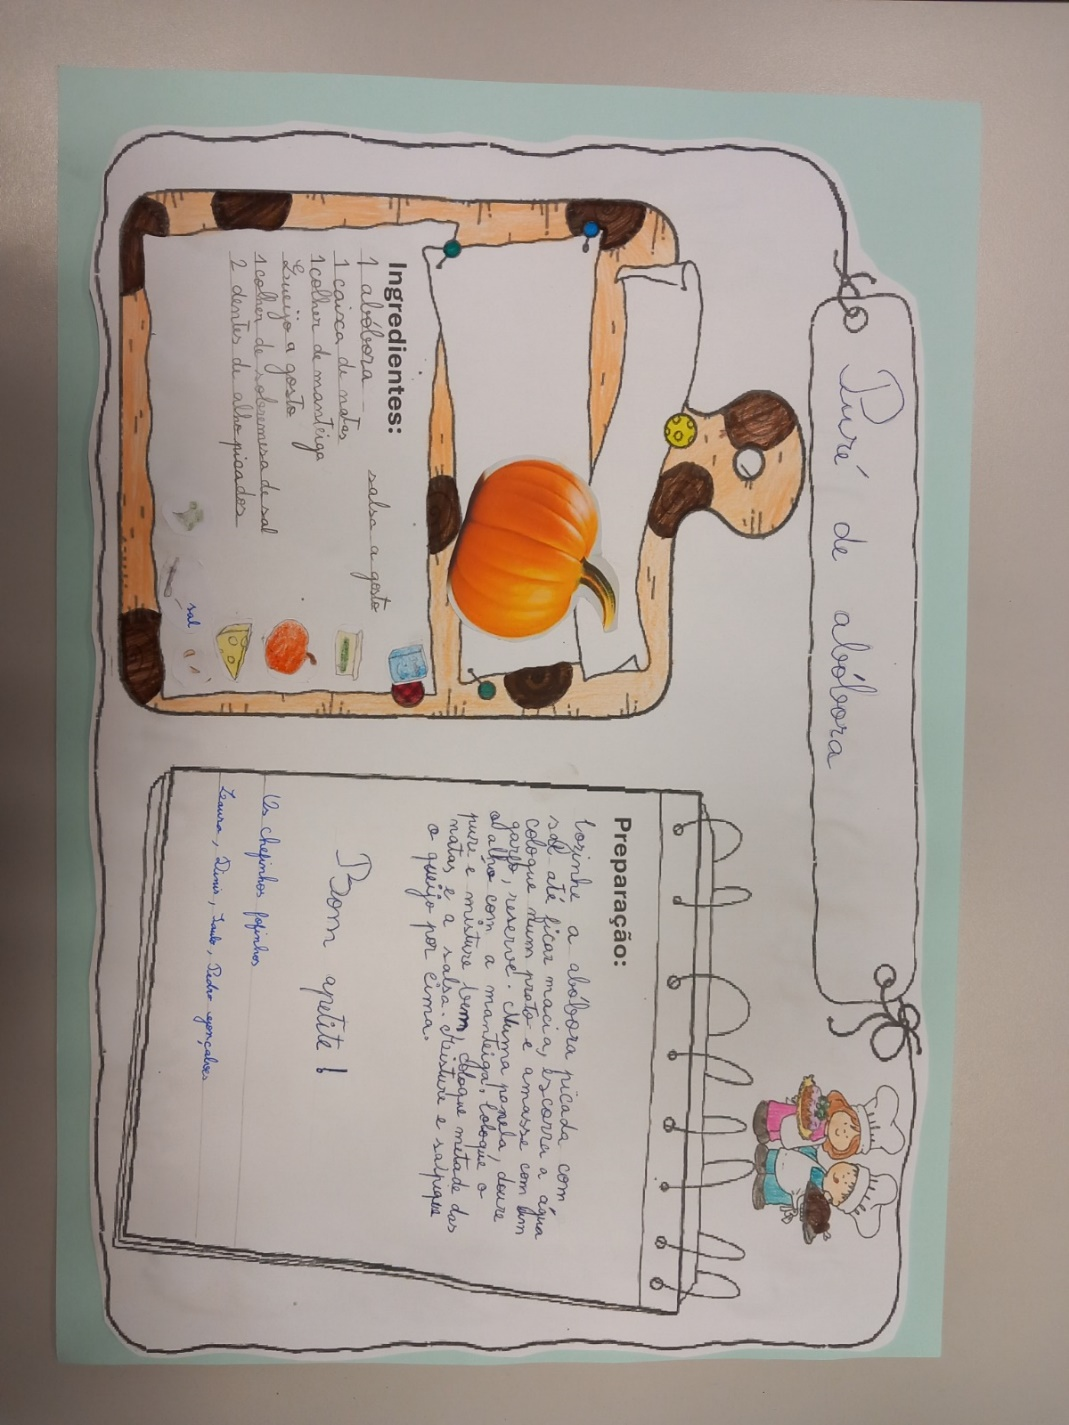 Puré de abóbora
Ingredientes:
1 abóbora salsa a gosto
1 caixa de natas
1 colher de manteiga
Queijo a gosto
1 colher de sobremesa de sal
2 dentes de alho picados
sal
Preparação:
Cozinhe a abóbora picada com
sal até ficar macia, escorra a água
coloque num prato e amasse com um
garfo, reserve. Numa panela, doure
o alho com a manteiga, coloque o
puré e misture bem, coloque metade das
natas e a salsa. Misture e salpique
o queijo por cima.
Bom apetite!
Os chefinhos fofinhos
Laura, Dinis, Pedro Gonçalves